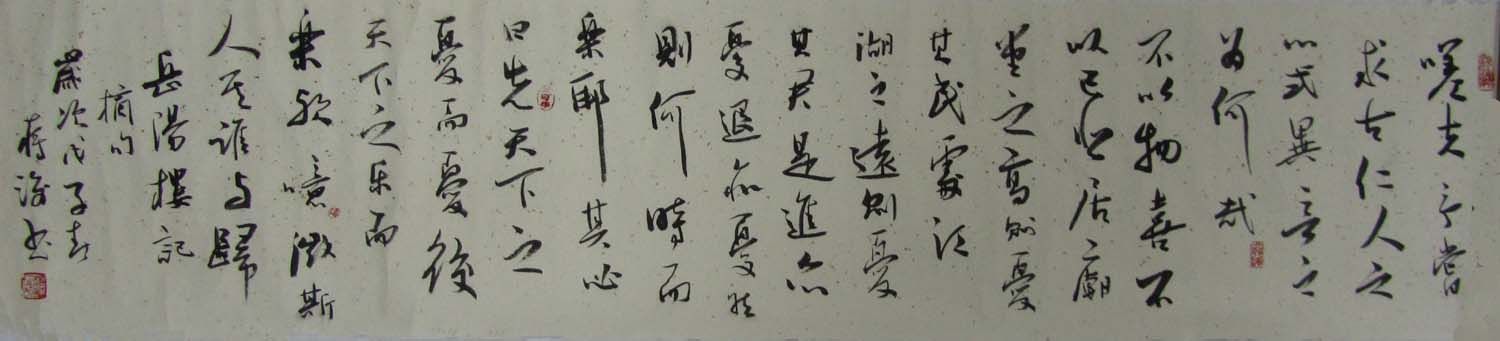 嗟夫予嘗
求古仁人之
心或異二者之
为何哉
不以物喜不
以己悲居廟
堂之高则憂
其民處江
湖之遠则憂
其君是進亦
憂退亦憂然
則何時而
樂耶其必
曰先天下之
憂而憂後
天下之乐而
樂欤噫微斯
人吾誰与歸
岳陽樓記
摘句
歲次戊子春
蒋书